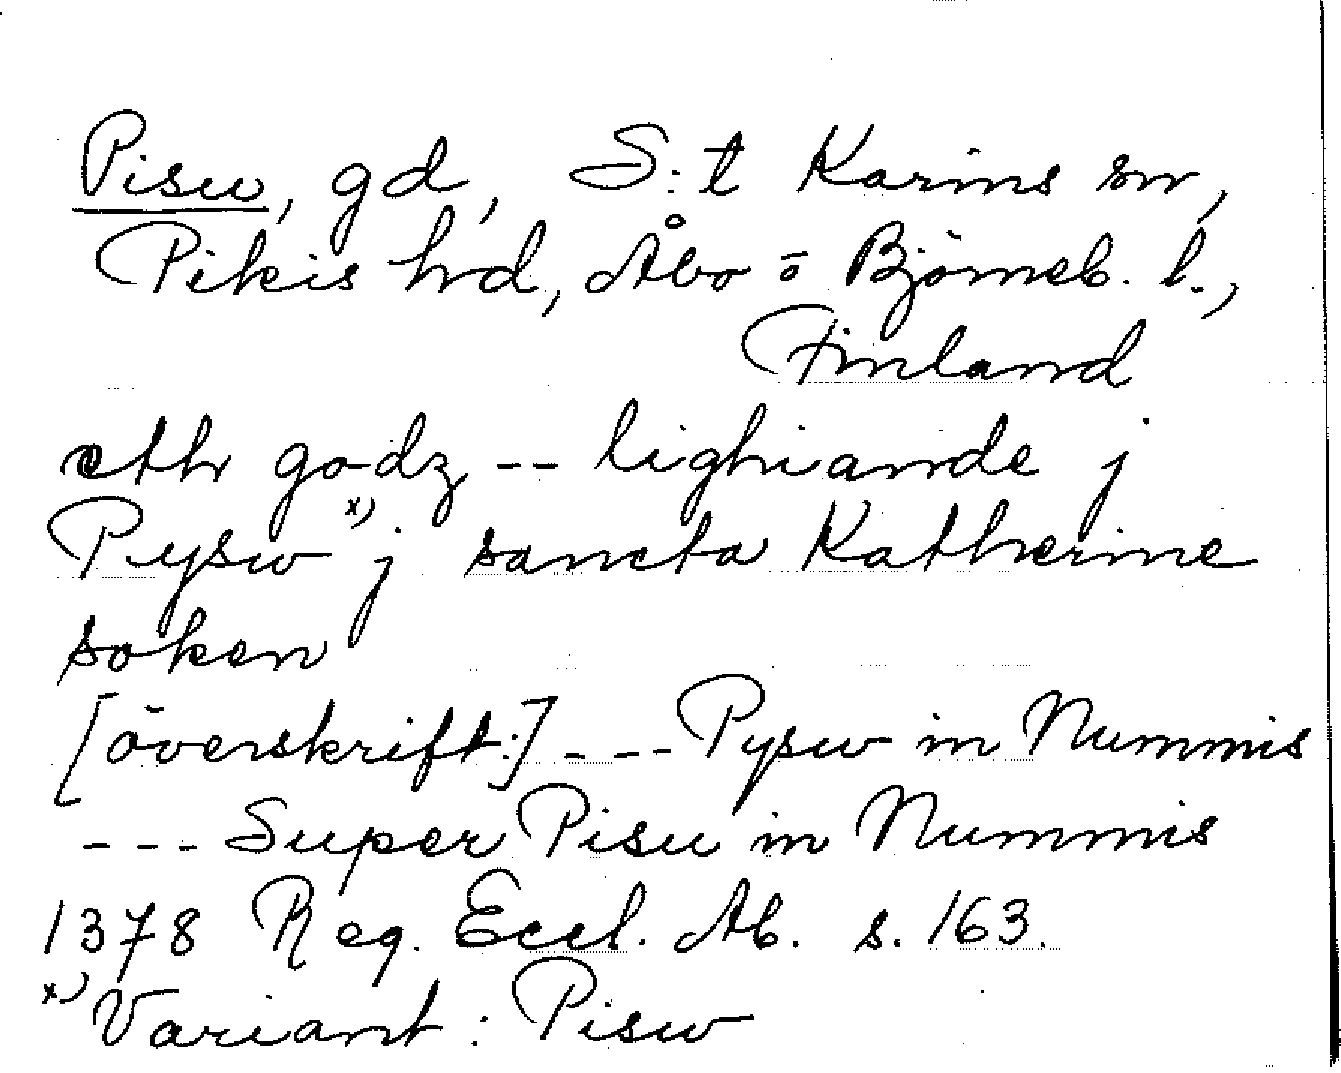 Pisw, gd, S:t Karins sn,
Pikis hrd, Åbo o Björneb. l.,
Finland
eth godz -- lighiande j
Pysw x) j sancta Katherine
soken
[överskrift:] --- Pysw in Nummis
--- Super Pisu in Nummis
1378 Reg. Eccl. Ab. s. 163.
x) Variant: Pisw